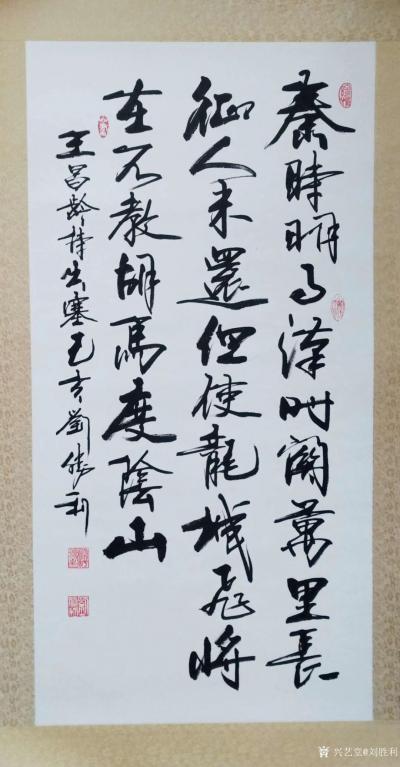 秦時明月漢时關萬里長
征人未還但使龍城飛將
在不教胡馬度陰山
王昌齡詩出塞己亥劉勝利
兴艺堂@刘胜利